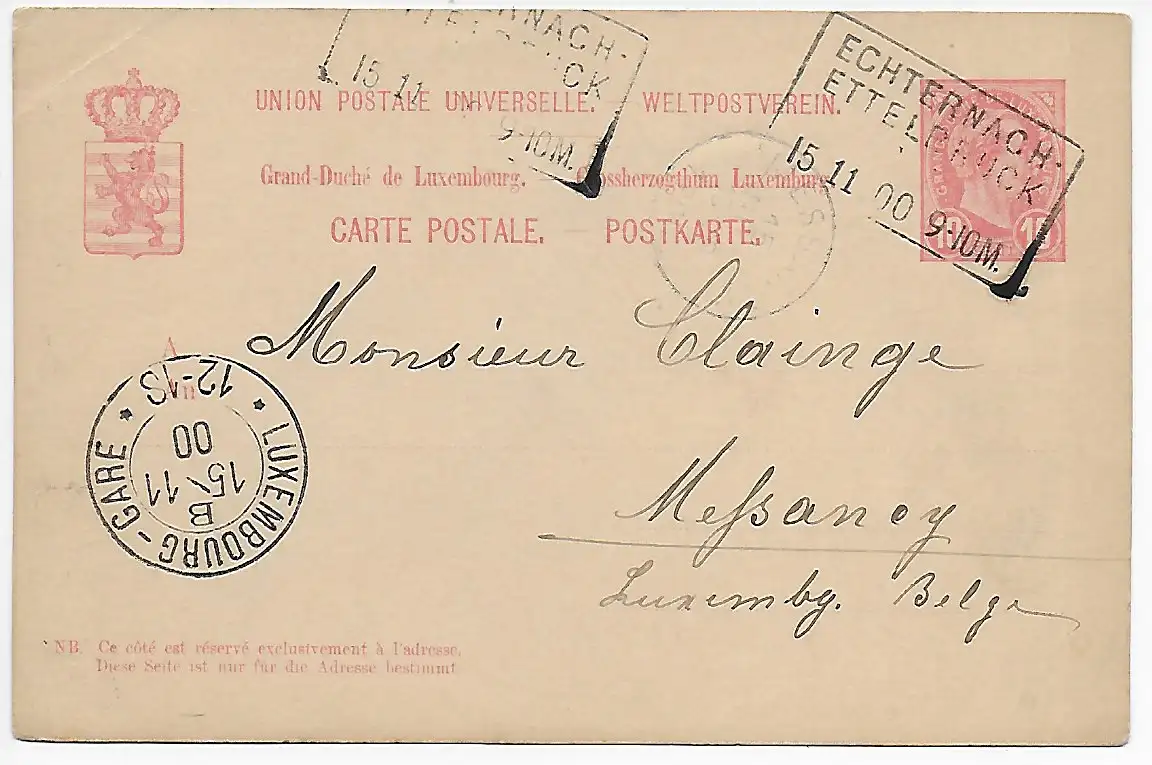 ECHTERNACH-
ETTELBRUCK
15 11 00 9-10M.
ERNACH-
UCK
15 11
9-10M.
UNION POSTALE UNIVERSELLE. — WELTPOSTVEREIN.
Grand-Duché de Luxembourg. — Grossherzogthum Luxemburg.
CARTE POSTALE. — POSTKARTE.
10 10
A
An
Monsieur Clainge
Messancy
Luxembg. Belge
LUXEMBOURG-GARE
12-1S
00
15/11
B
NB. Ce côté est réservé exclusivement à l'adresse.
Diese Seite ist nur für die Adresse bestimmt.